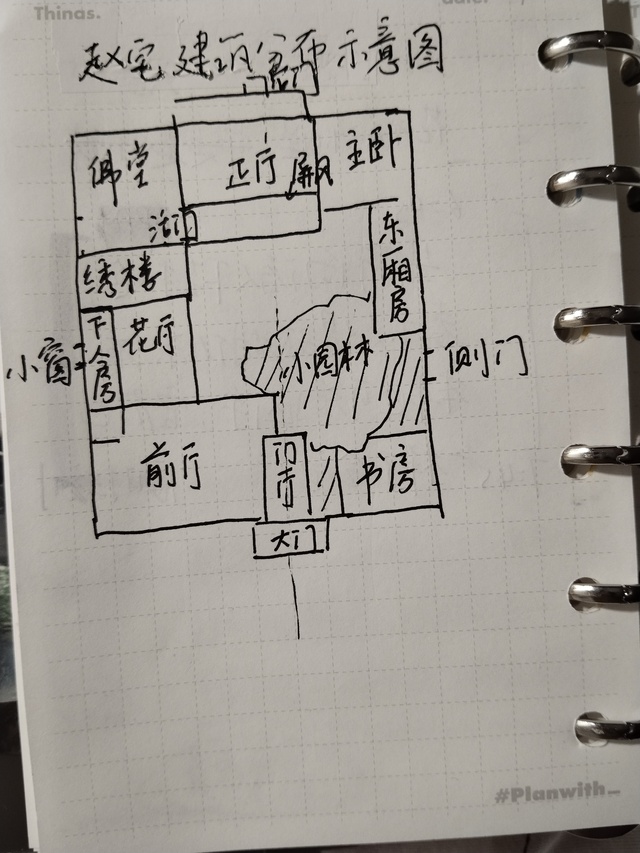 Thinas.
date.
赵宅建筑分布示意图
后门
佛堂
正厅
屏风
主卧
活门
绣楼
东厢房
小窗
下人房
花厅
小园林
侧门
前厅
门厅
书房
大门
#Planwith_